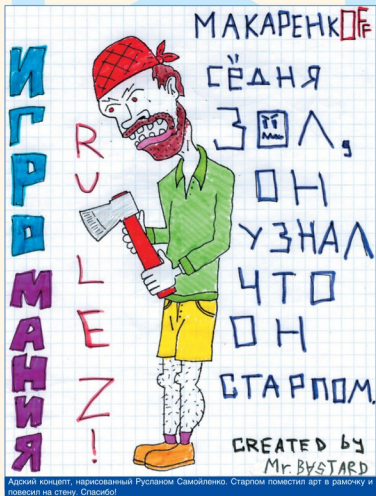 ИГРОМАНИЯ
RULEZ!
МАКАРЕНКOFF
СЁДНЯ
ЗОЛ,
ОН
УЗНАЛ
ЧТО
ОН
СТАРПОМ.
CREATED by
Mr. BASTARD
Адский концепт, нарисованный Русланом Самойленко. Старпом поместил арт в рамочку и
повесил на стену. Спасибо!